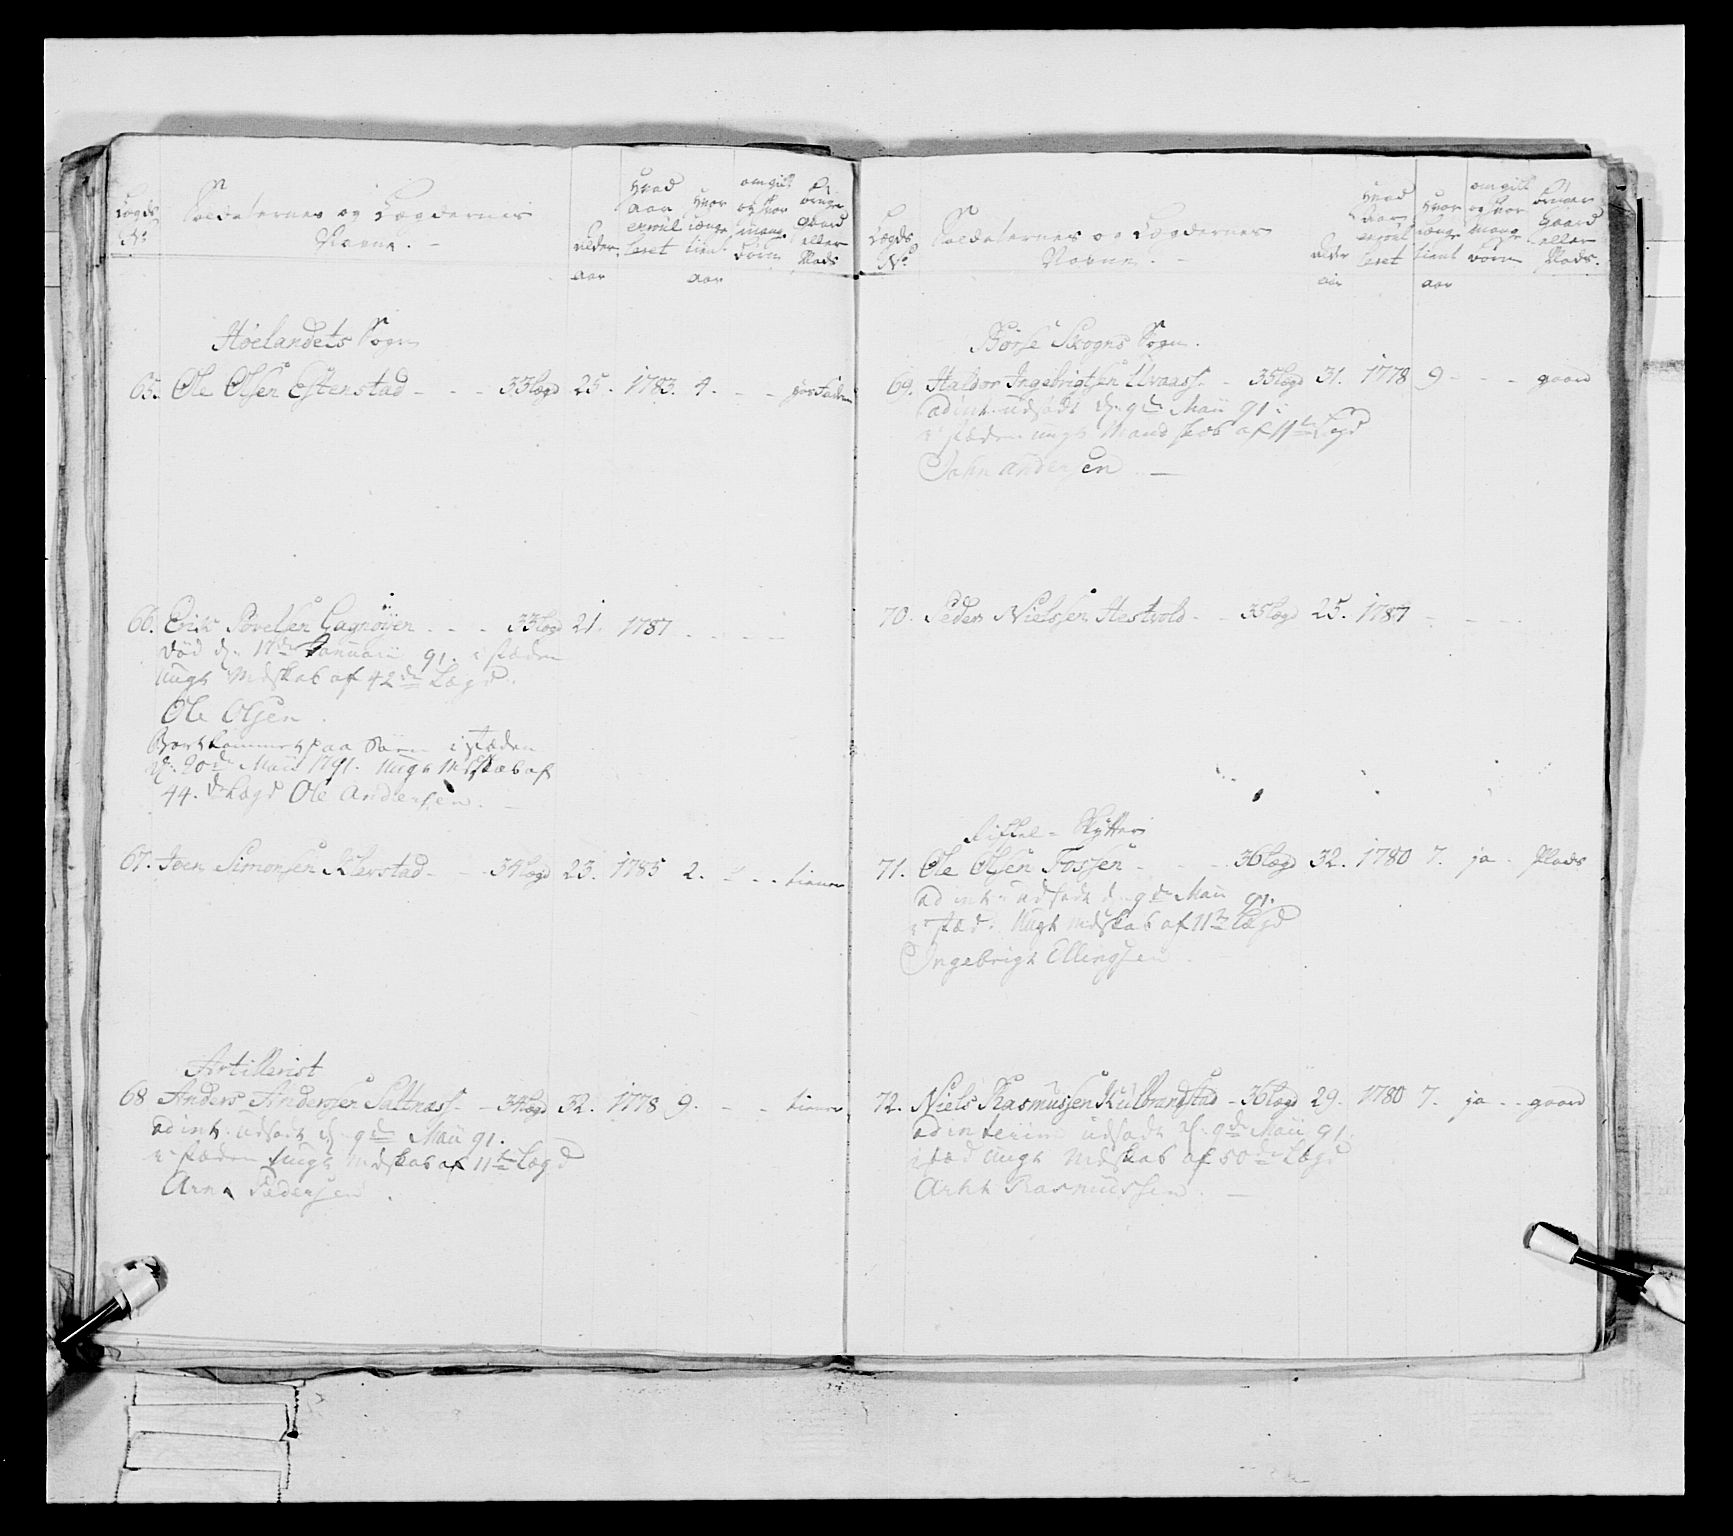 Lægds
No
Soldaternes og Lægdernes
Navne. -
Alder
aar
Hvad
aar
enroul
leret
Hvor
længe
tient
aar
om gift
og hvor
mange
børn
bruger
gaard
eller
Plads
Høelandets Sogn
65. Ole Olsen Estenstad - - - 33 Lægd 25. 1783. 4. - -
66. Erik Povelsen Gagnøyen - - - 33 Lægd 21. 1787 - - - -
død d. 17de Januarii 91. i stæden
Mdskab af 42de Lægd.
Ole Olsen.
Bortkommet paa Søen i stæden
d. 20de Maii 1791. Mdskab af
44. de Lægd Ole Andersen. -
67. Joen Simonsen Klevstad - - - 34 Lægd 23. 1785 2. - - - tiener
Artillerist
68 Anders Andersen Saltnæss - - 34 Lægd 32. 1778 9. - - tiener
ad int: udsadt d. 9de Maii 91.
i stæden Mdskab af 11te Lægd
Arnt Pedersen.
Lægds
No
Soldaternes og Lægdernes
Navne. -
Alder
aar
Hvad
aar
enroul
leret
Hvor
længe
tient
aar
om gift
og hvor
mange
børn
bruger
Gaard
eller
Plads.
Børse Skogns Sogn.
69. Haldor Ingebrigtsen Uvaass - - 35 Lægd 31. 1778 9 - - - gaard
ad int: udsadt d. 9de Maii 91.
i stæden Mandskab af 11te Lægd
John Andersen. -
70. Peder Nielssen Hestvold - - 35 Lægd 25. 1787 - - - -
Riffel-Skytter
71. Ole Olsen Fossen - - - 36 Lægd 32. 1780 7. ja - Plads
ad int: udsadt d. 9de Maii 91.
i stæd. Mdskab af 11te Lægd
Ingebrigt Ellingsen.
72. Niels Rasmussen Kulbrandstad - 36 Lægd 29. 1780 7. ja - - gaard
ad interim udsadt d. 9de Maii 91.
i stæd Mdskab af 50de Lægd
Rasmussen. -